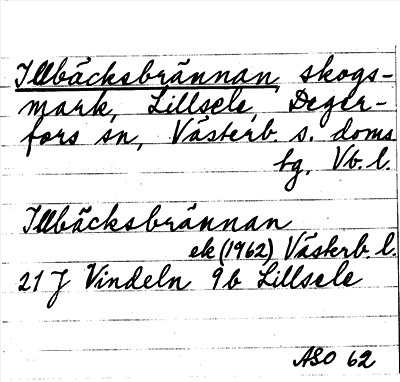 Illbäcksbrännan, skogs-
mark, Lillsele, Deger-
fors sn, Västerb. s. doms
tg, Vb. l.
Illbäcksbrännan
ek (1962) Västerb. l.
21 J Vindeln 9b Lillsele
ASO 62